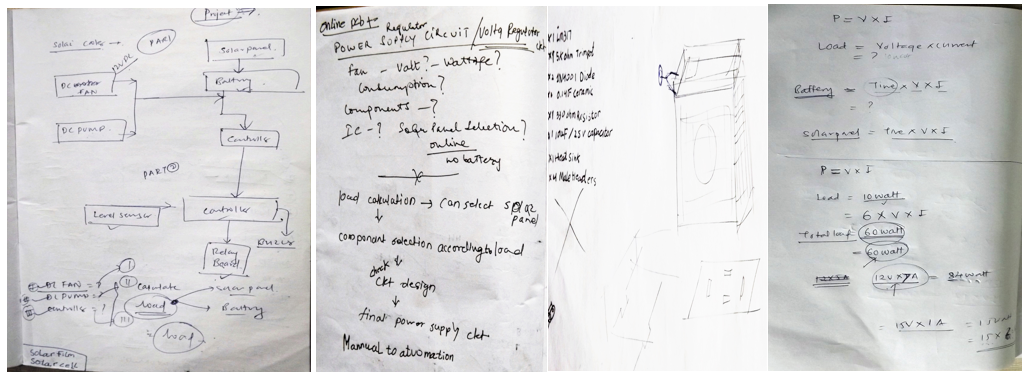 Project
Solar cooler →
PART 1
Solar panel
Battery
12V DC
DC motor
FAN
DC PUMP
Controller
PART ②
Level sensor
Controller
Buzzer
Relay
Board
I
DC FAN = ?
II
calculate
solar panel
DC PUMP = ?
load
Battery
controller = ?
III
load
Solar film
Solar cell
Online
Regulator
POWER SUPPLY CIRCUIT / Voltg Regulator
ckt
Fan - Volt? - Wattage?
Consumption?
Components - ?
IC - ? Solar Panel Selection?
online
no battery
load calculation → can select solar
panel
component selection according to load
ckt design
final power supply ckt
Mannual to atuomation
x1 5k ohm Trimpot
x2 1N4001 Diode
x1 0.1uF ceramic
x1 330 ohm Resistor
x1 10uF / 25V capacitor
x1 Heat sink
x4 Male headers
P = V x I
Load = Voltage x current
= ?
Battery = Time x V x I
= ?
Solar panel = Time x V x I
P = V x I
Load = 10 watt
= 6 x V x I
Total load = 60 watt
= 60 watt
12V x 7A = 84 watt
= 15V x 1A = 15 watt
= 15 x 6